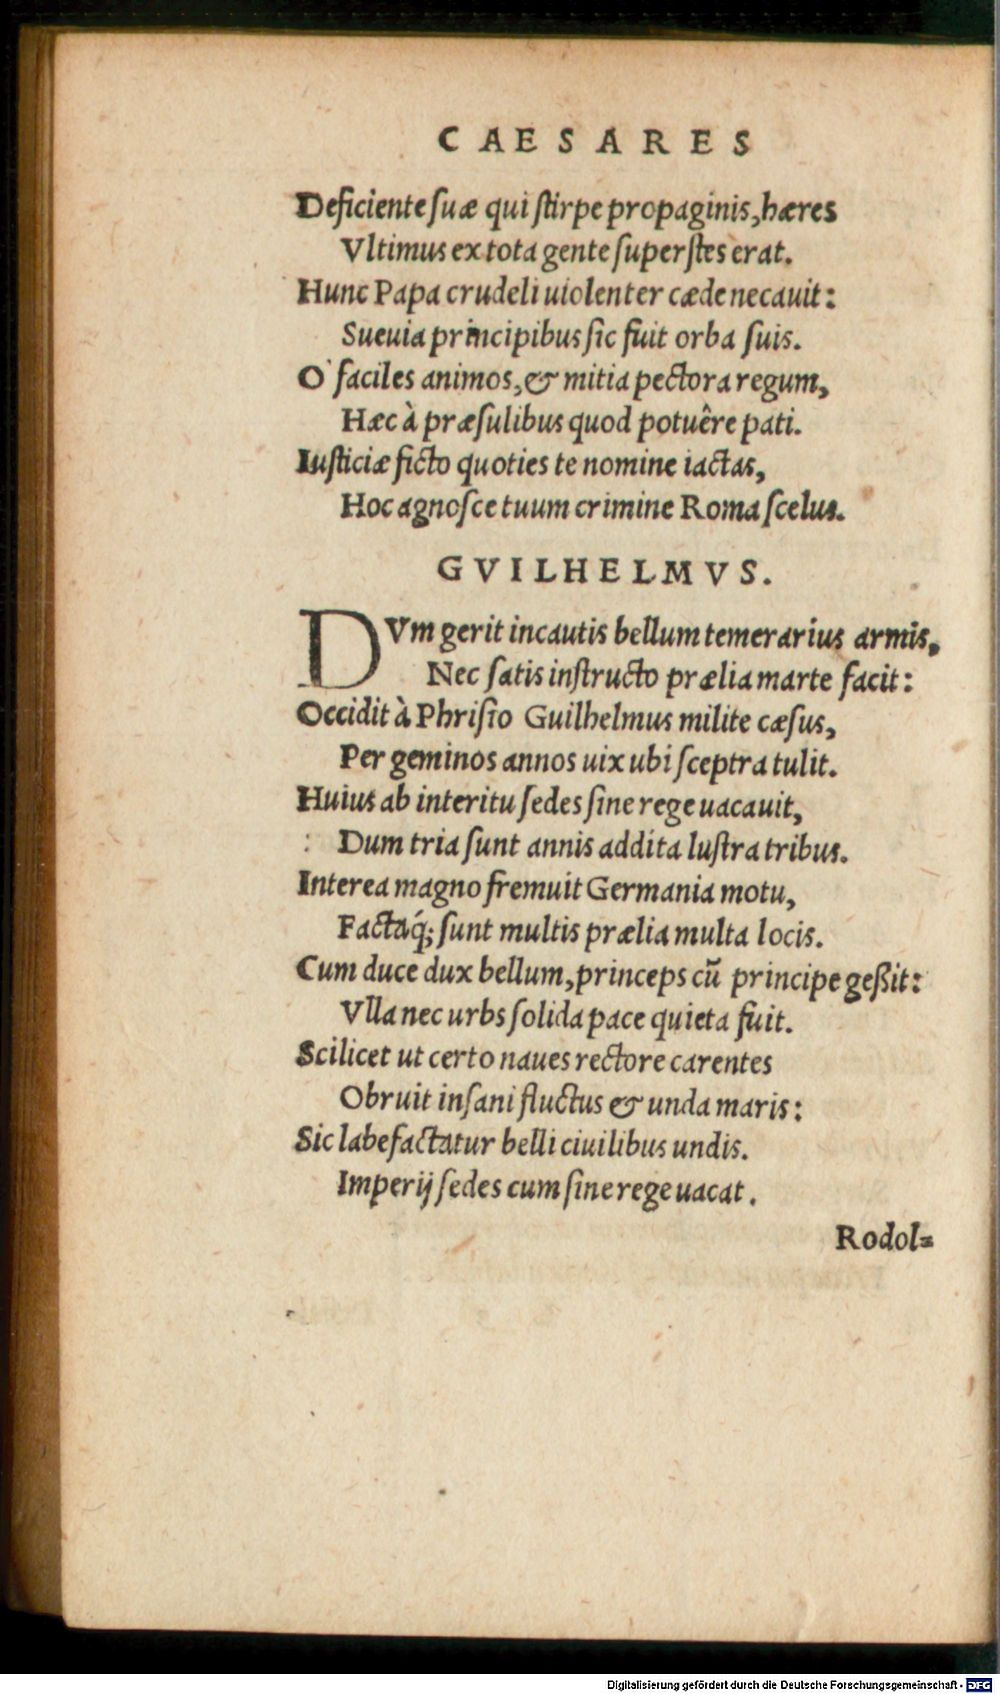 CAESARES
Deficiente suæ qui stirpe propaginis, hæres
Vltimus ex tota gente superstes erat.
Hunc Papa crudeli uiolenter cæde necauit:
Sueuia principibus sic fuit orba suis.
O' faciles animos, & mitia pectora regum,
Hæc à præsulibus quod potuêre pati.
Iusticiæ ficto quoties te nomine iactas,
Hoc agnosce tuum crimine Roma scelus.
GVILHELMVS.
DVm gerit incautis bellum temerarius armis,
Nec satis instructo prælia marte facit:
Occidit à Phrisio Guilhelmus milite cæsus,
Per geminos annos uix ubi sceptra tulit.
Huius ab interitu sedes sine rege uacauit,
Dum tria sunt annis addita lustra tribus.
Interea magno fremuit Germania motu,
Factaq́; sunt multis prælia multa locis.
Cum duce dux bellum, princeps cū principe geßit:
Vlla nec urbs solida pace quieta fuit.
Scilicet ut certo naues rectore carentes
Obruit insani fluctus & unda maris:
Sic labefactatur belli ciuilibus undis.
Imperij sedes cum sine rege uacat.
Rodol=
Digitalisierung gefördert durch die Deutsche Forschungsgemeinschaft - DFG